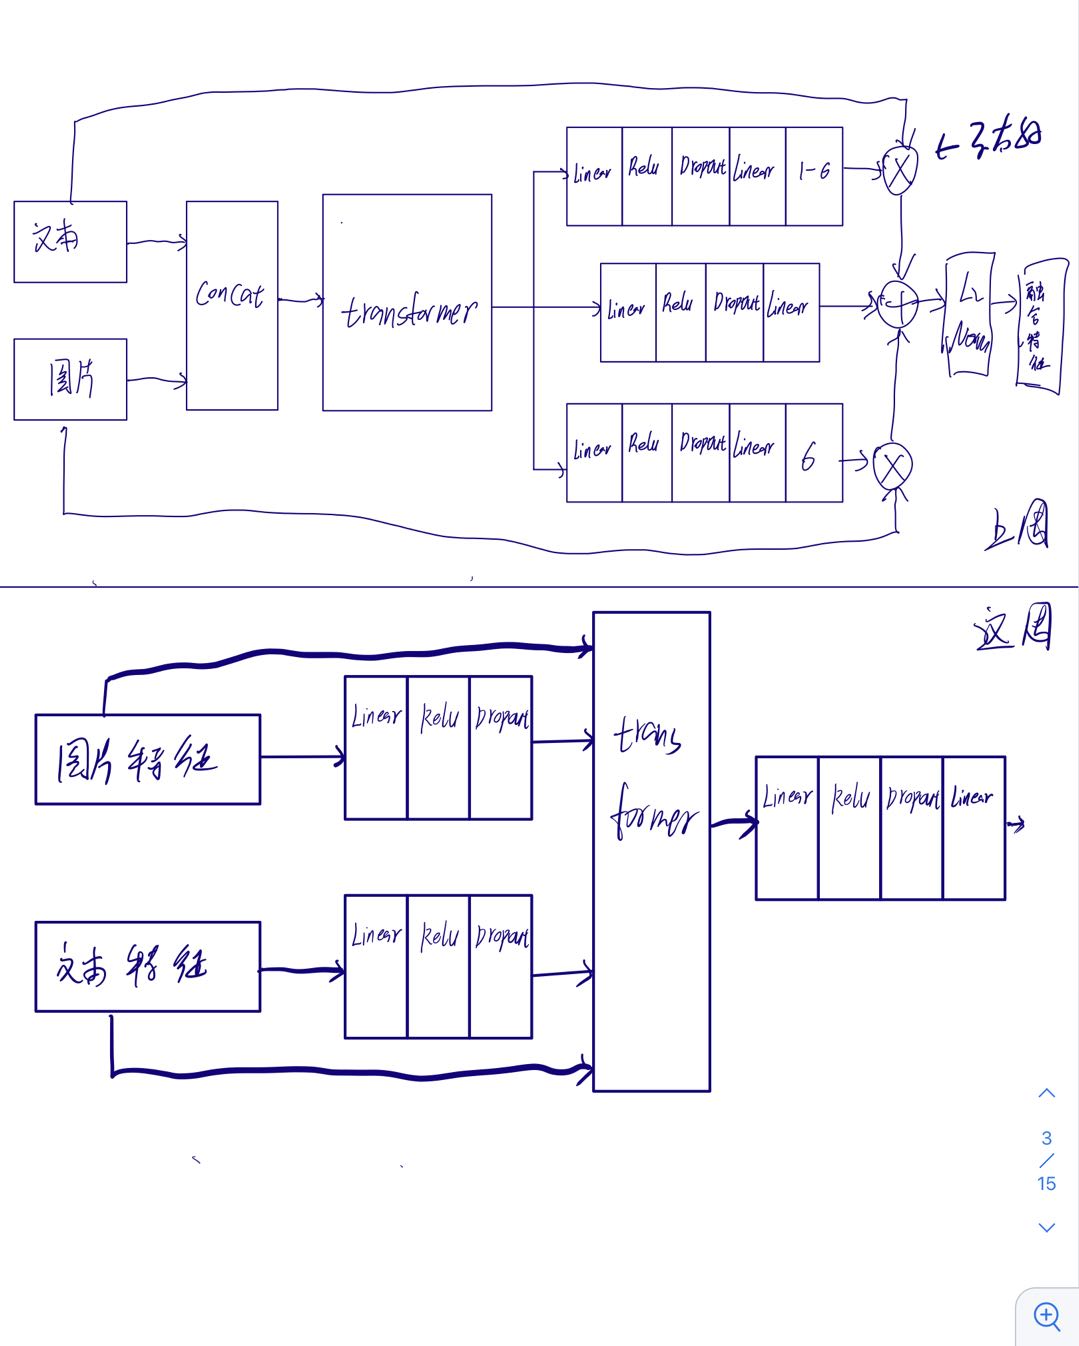 文本
图片
Concat
transformer
Linear Relu Dropout Linear 1-6
Linear Relu Dropout Linear
Linear Relu Dropout Linear 6
X
+
X
L2
Norm
融合特征
上周
这周
图片特征
Linear Relu Dropout
文本特征
Linear Relu Dropout
trans
former
Linear Relu Dropout Linear
3
/
15